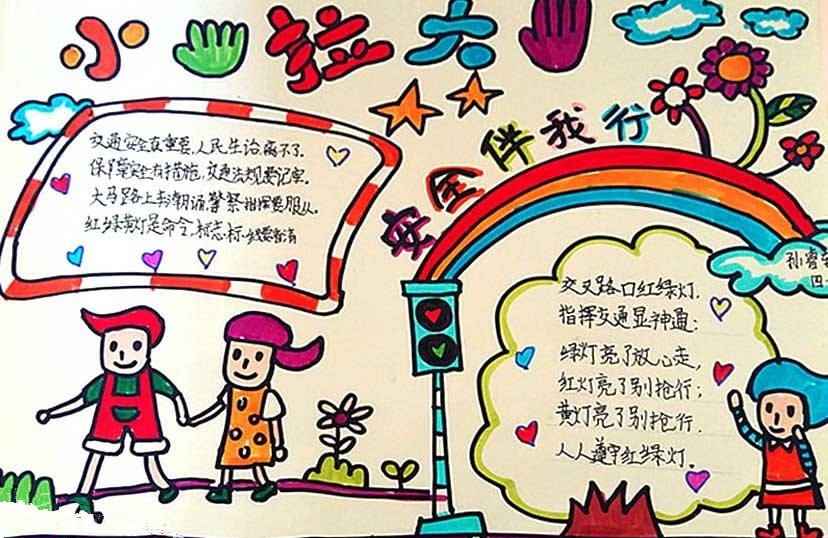 小拉大
安全伴我行
交通安全重要,人民生活离不了.
保障安全有措施,交通法规要记牢.
大马路上车潮涌,警察指挥要服从.
红绿黄灯是命令,标志标线要看清
孙睿
四
交叉路口红绿灯.
指挥交通显神通:
绿灯亮了放心走,
红灯亮了别抢行;
黄灯亮了别抢行.
人人遵守红绿灯.